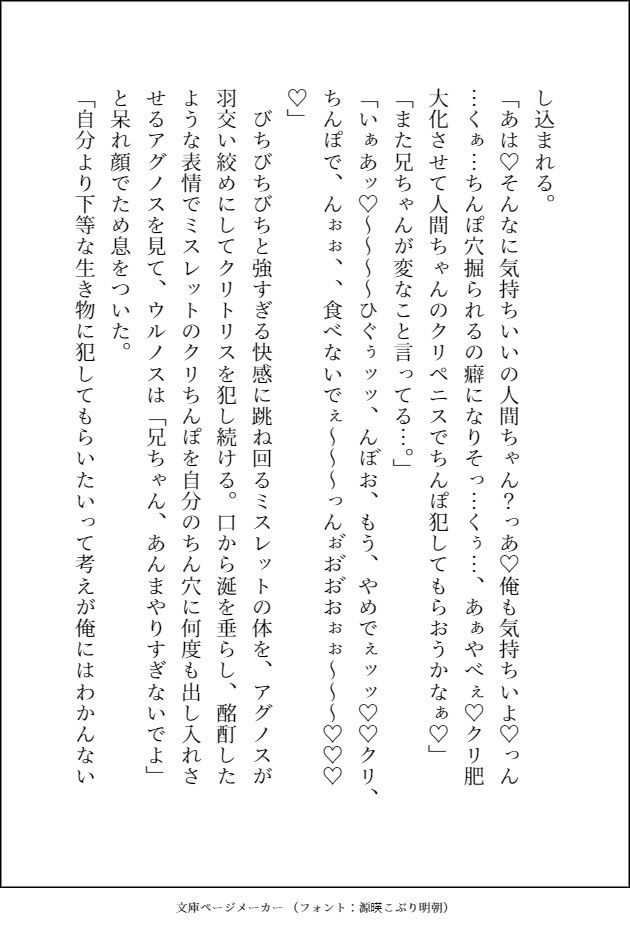 し込まれる。
「あは♡そんなに気持ちいいの人間ちゃん？っあ♡俺も気持ちいよ♡っん
…くぁ…ちんぽ穴掘られるの癖になりそっ…くぅ…、あぁやべぇ♡クリ肥
大化させて人間ちゃんのクリペニスでちんぽ犯してもらおうかなぁ♡」
「また兄ちゃんが変なこと言ってる…。」
「いぁあッ♡〜〜〜〜ひぐぅッッ、んぼお、もう、やめでぇッッ♡♡クリ、
ちんぽで、んぉぉ、、食べないでぇ〜〜〜っんお゛お゛お゛おぉぉ〜〜〜♡♡♡
♡」
びちびちびちと強すぎる快感に跳ね回るミスレットの体を、アグノスが
羽交い絞めにしてクリトリスを犯し続ける。口から涎を垂らし、酩酊した
ような表情でミスレットのクリちんぽを自分のちん穴に何度も出し入れさ
せるアグノスを見て、ウルノスは「兄ちゃん、あんまやりすぎないでよ」
と呆れ顔でため息をついた。
「自分より下等な生き物に犯してもらいたいって考えが俺にはわかんない
文庫ページメーカー（フォント：源暎こぶり明朝）